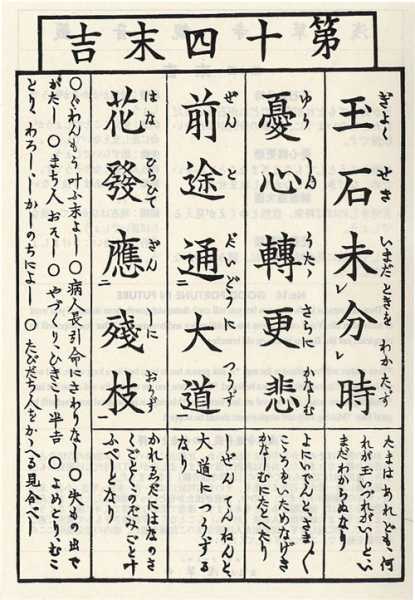 第十四末吉
ぎよく せき いまだときを わかたず
玉石未分レ時
たまはあれども、何
れが玉いづれがいしと、い
まだわからぬなり
ゆうしん うたゝ さらに かなむ
憂心轉更悲
よにいでんと、さま〲
こころをいためなげき
かなしむにたとへたり
ぜんと だいどうに つうず
前途通二大道一
しぜんてんねんと、
大道につうずる
なり
はなひらいて ざんしに おうず
花發應二殘枝一
かれゑだにはなのさ
くごとく、のぞみごと叶
ふべしとなり
○ぐわんもう叶ふ末よし ○病人長引命にさわりなし ○失もの出で
がたし ○まち人おそし ○やづくり、ひきこし半吉 ○よめとり、むこ
とり、わろし、しかしのちによし ○たびだち人をかゝへる見合べし